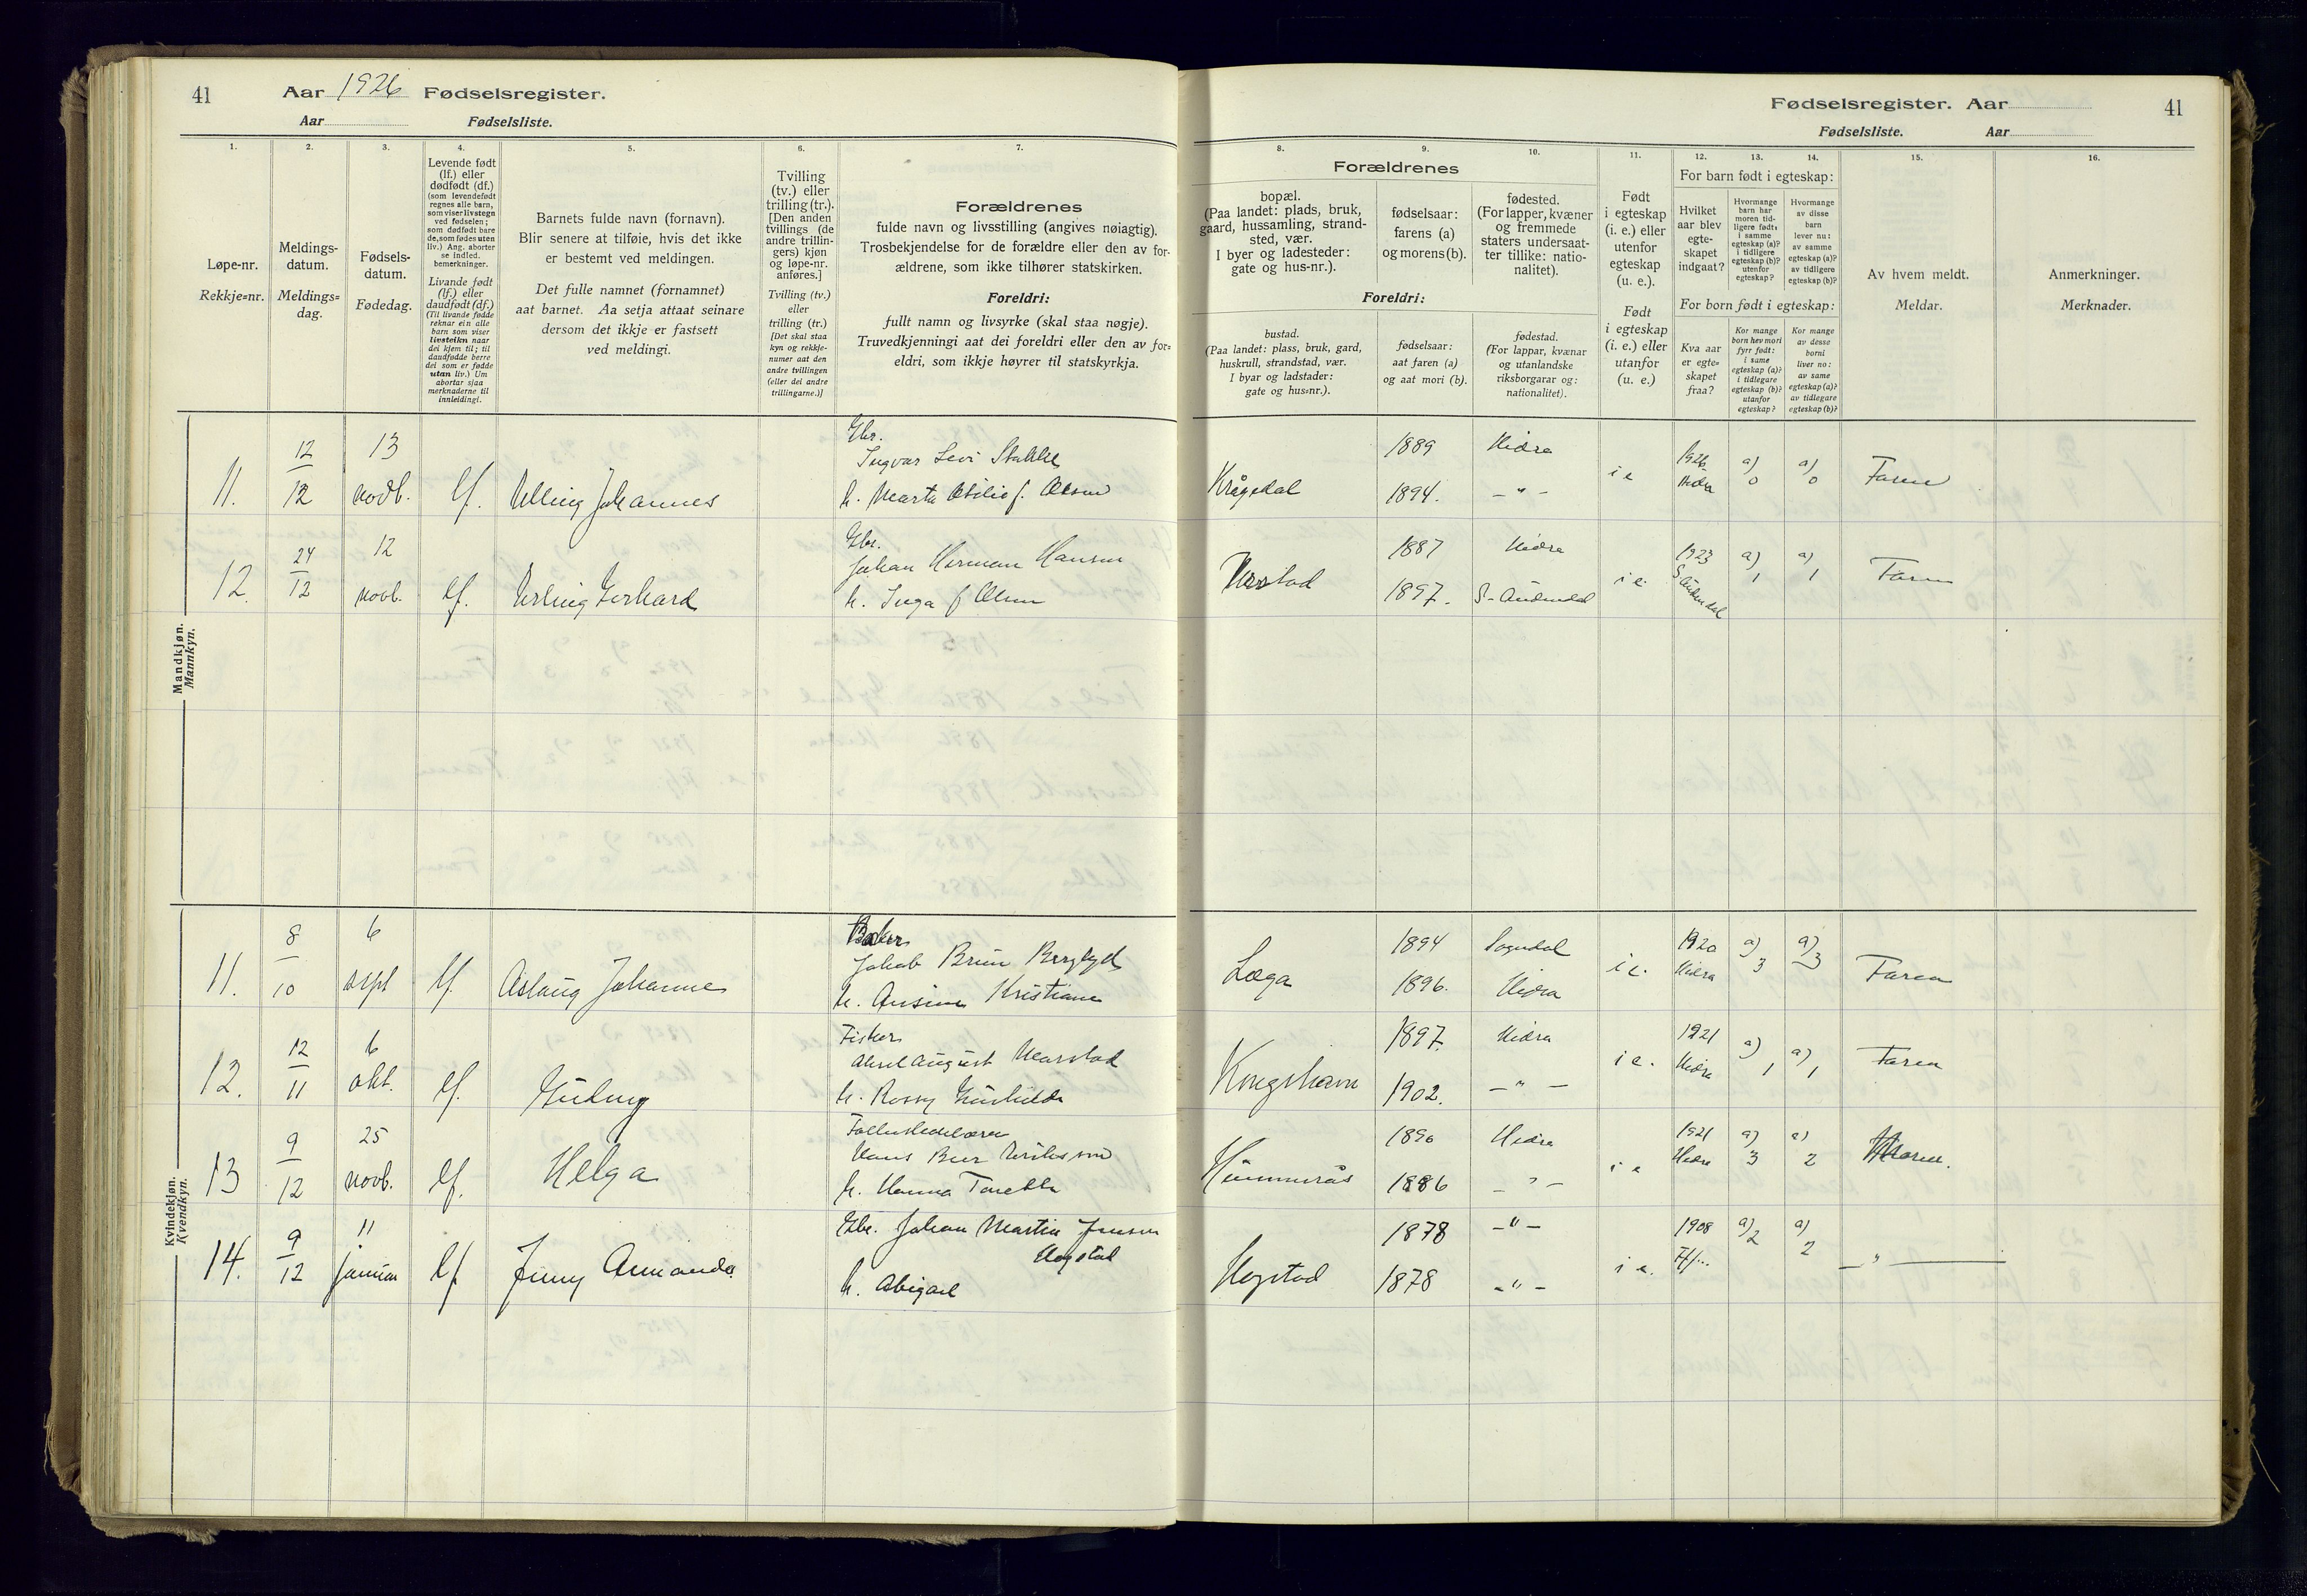 41
Aar 1926 Fødselsregister.
Aar Fødselsliste.
1.
2.
3.
4.
5.
6.
7.
Løpe-nr.
Rekkje=nr.
Meldings-
datum.
Meldings=
dag.
Fødsels-
datum.
Fødedag.
Levende født
(lf.) eller
dødfødt (df.)
(som levendefødt
regnes alle barn,
som viser livstegn
ved fødselen;
som dødfødt bare
de, som fødes uten
liv.) Ang. aborter
se indled.
bemerkninger.
Livande født
(lf.) eller
daudfødt (df.)
(Til livande fødde
reknar ein alle
born som viser
livsteikn naar
dei kjem til; til
daudfødde berre
dei som er fødde
utan liv.) Um
abortar sjaa
merknaderne til
innleidingi.
Barnets fulde navn (fornavn).
Blir senere at tilføie, hvis det ikke
er bestemt ved meldingen.
Det fulle namnet (fornamnet)
aat barnet. Aa setja attaat seinare
dersom det ikkje er fastsett
ved meldingi.
Tvilling
(tv.) eller
trilling (tr.).
[Den anden
tvillings (de
andre trillin-
gers) kjøn
og løpe-nr.
anføres.]
Tvilling (tv.)
eller
trilling (tr.)
[Det skal staa
kyn og rekkje-
numer aat den
andre tvillingen
(eller dei andre
trillingarne.)]
Forældrenes
fulde navn og livsstilling (angives nøiagtig).
Trosbekjendelse for de forældre eller den av for-
ældrene, som ikke tilhører statskirken.
Foreldri:
fullt namn og livsyrke (skal staa nøgje).
Truvedkjenningi aat dei foreldri eller den av for=
eldri, som ikkje høyrer til statskyrkja.
Mandkjøn.
Mannkyn.
11.
12
12
13
novb.
lf.
Elling Johannes
Gbr.
Ingvar Levi Stakke
h. Marta Otilie f. Olsen
12.
24
12
12
novb.
lf.
Erling Gerhard
Gbr.
Johan Herman Hansen
h. Inga f Olsen
Kvindekjøn.
Kvendkyn.
11.
8
10
6
sept
lf.
Aslaug Johanne
Baker
Jakob Brun
h. Ansine Kristiane
12.
12
11
6
okt.
lf.
Gudny
Fisker
Aksel August
h. Rossy Gunhilde
13
9
12
25
novb.
lf.
Helga
Hans Beer
h. Hanna
14.
9
12
11
januar
lf
Jenny Amanda
Gbr. Johan Martin Jensen
Hogstad
h. Abigael
Fødselsregister. Aar
41
Fødselsliste. Aar
8.
9.
10.
11.
12.
13.
14.
15.
16.
Forældrenes
bopæl.
(Paa landet: plads, bruk,
gaard, hussamling, strand-
sted, vær.
I byer og ladesteder:
gate og hus-nr.).
fødselsaar:
farens (a)
og morens (b).
fødested.
(For lapper, kvæner
og fremmede
staters undersaat-
ter tillike: natio-
nalitet).
Foreldri:
bustad.
(Paa landet: plass, bruk, gard,
huskrull, strandstad, vær.
I byar og ladstader:
gate og hus=nr.).
fødselsaar:
aat faren (a)
og aat mori (b).
fødestad.
(For lappar, kvænar
og utanlandske
riksborgarar og:
nationalitet).
Født
i egteskap
(i. e.) eller
utenfor
egteskap
(u. e.).
Født
i egteskap
(i. e.) eller
utanfor
egteskap
(u. e.)
For barn født i egteskap:
Hvilket
aar blev
egte-
skapet
indgaat?
Hvormange
barn har
moren tid-
ligere født:
i samme
egteskap (a)?
i tidligere
egteskap (b)?
utenfor
egteskap?
Hvormange
av disse
barn
lever nu:
av samme
egteskap (a)?
av tidligere
egteskap (b)?
For born født i egteskap:
Kva aar
er egte-
skapet
fraa?
Kor mange
born hev mori
fyrr født:
i same
egteskap (a)?
i tidlegare
egteskap (b)?
utanfor
egteskap?
Kor mange
av desse
borni
liver no:
av same
egteskap (a)?
av tidlegare
egteskap (b)?
Av hvem meldt.
Meldar.
Anmerkninger.
Merknader.
Krågedal
1889
1894.
Hidra
— " —
i e
1926
Hidra
a)
0
a)
0
Faren
1887
1897.
Hidra
S. Audnedal
i e.
1923
S. Audnedal
a)
1
a)
1
Faren
Læga
1894
1896.
Sogndal
Hidra
i e.
1920
Hidra
a)
3
a)
3
Faren
Kongshavn
1897.
1902.
Hidra
— " —
i e.
1921
Hidra
a)
1
a)
1
Faren
1890
1886
Hidra
— " —
i e
1921
Hidra
a)
3
a)
2
Hogstad
1878
1878
— " —
— " —
i e.
1908
a)
2
a)
2
— " —